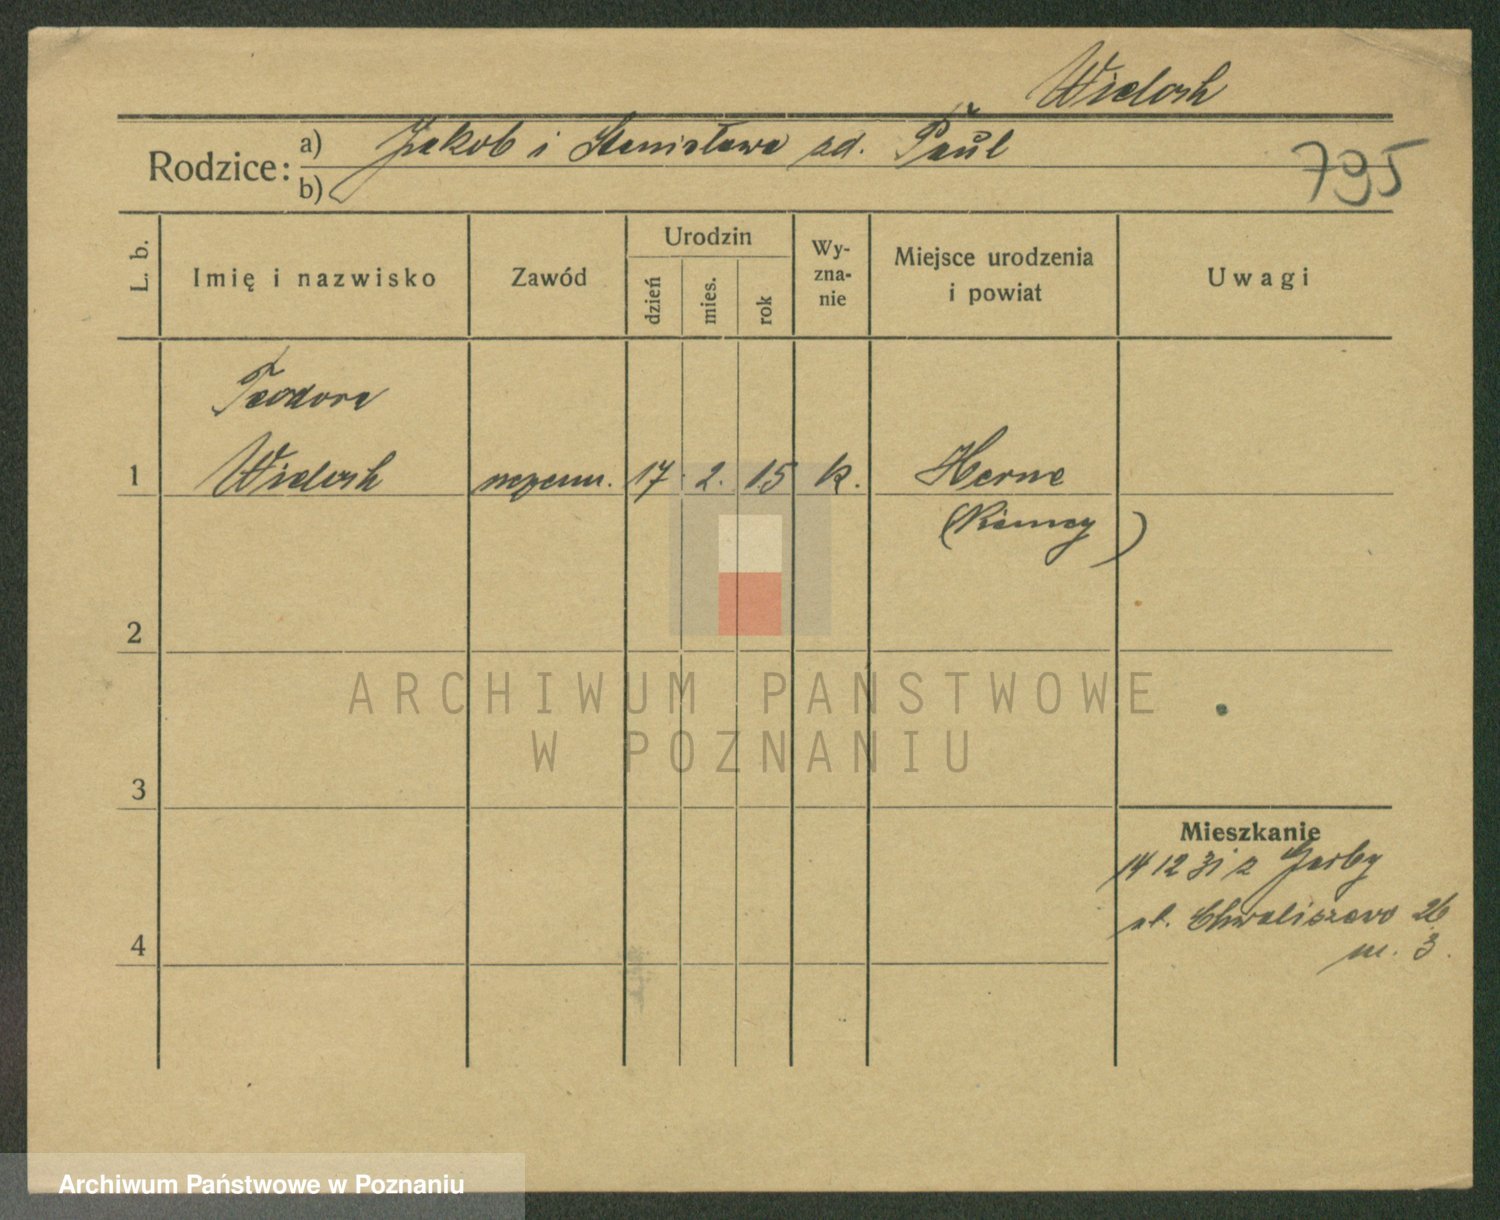 Wielosh
Rodzice: a) Jakob i Stanisława zd. Paŭl
b)
795
L. b.
Imię i nazwisko
Zawód
Urodzin
dzień
mies.
rok
Wy-
zna-
nie
Miejsce urodzenia
i powiat
Uwagi
Teodora
1 Wielosh 17. 2. 15 k. Herne
(Niemcy)
2
3
4
Mieszkanie
14 12 31 z Garby
ul. Chwaliszewo 26
m. 3.
ARCHIWUM PAŃSTWOWE
W POZNANIU
Archiwum Państwowe w Poznaniu